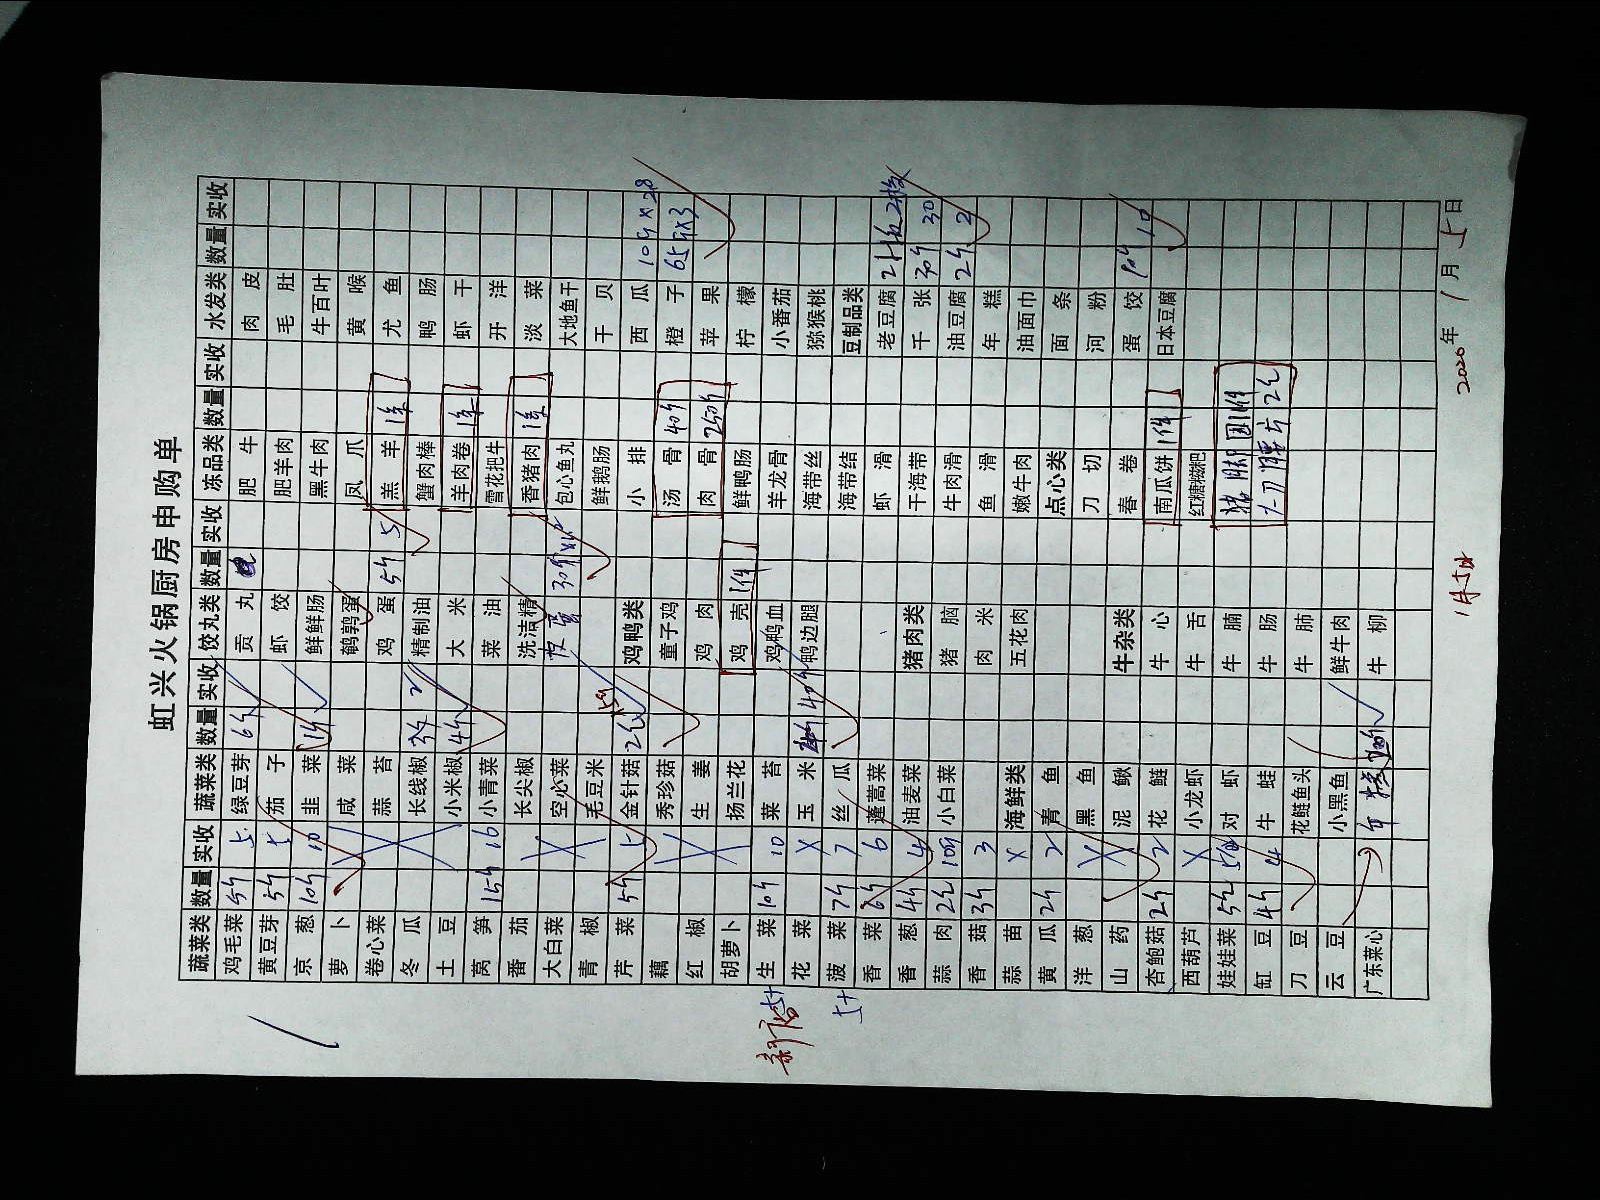 虹兴火锅厨房申购单
蔬菜类 数量 实收 蔬菜类 数量 实收 饺丸类 数量 实收 冻品类 数量 实收 水发类 数量 实收
鸡毛菜 5斤 5 绿豆芽 6斤 贡丸 肥牛 肉皮
黄豆芽 5斤 5 茄子 虾饺 肥羊肉 毛肚
京葱 10斤 10 韭菜 1斤 鲜鲜肠 黑牛肉 牛百叶
萝卜 咸菜 鹌鹑蛋 凤爪 黄喉
卷心菜 蒜苔 鸡蛋 5斤 5 羔羊 1条 尤鱼
冬瓜 长线椒 3斤 2 精制油 蟹肉棒 鸭肠
土豆 小米椒 4斤 大米 羊肉卷 1条 虾干
莴笋 15斤 16 小青菜 菜油 雪花把牛 开洋
番茄 长尖椒 洗洁精 香猪肉 1条 淡菜
大白菜 空心菜 皮蛋 30个 包心鱼丸 大地鱼干
青椒 毛豆米 鲜鹅肠 干贝
芹菜 5斤 5 金针菇 2包 鸡鸭类 小排 西瓜 10斤×2.8
藕 秀珍菇 童子鸡 汤骨 40斤 橙子 65斤×3
红椒 生姜 鸡肉 肉骨 250斤 苹果
胡萝卜 扬兰花 鸡壳 1件 鲜鸭肠 柠檬
生菜 10斤 10 菜苔 鸡鸭血 羊龙骨 小番茄
花菜 X 玉米 40斤 鸭边腿 海带丝 猕猴桃
菠菜 7斤 7 丝瓜 海带结 豆制品类
香菜 6斤 6 蓬蒿菜 虾滑 老豆腐 2板 2板
香葱 4斤 4 油麦菜 猪肉类 干海带 千张 30斤 30
蒜肉 2包 10斤 小白菜 猪脑 牛肉滑 油豆腐 2斤 2
香菇 3斤 3 肉米 鱼滑 年糕
蒜苗 X 海鲜类 五花肉 嫩牛肉 油面巾
黄瓜 2斤 2 青鱼 点心类 面条
洋葱 X 黑鱼 刀切 河粉
山药 泥鳅 牛杂类 春卷 蛋饺 10
杏鲍菇 2斤 2 花鲢 牛心 南瓜饼 1件 日本豆腐
西葫芦 X 小龙虾 牛舌 红糖糍粑
娃娃菜 5包 对虾 牛腩 猪脚圈1件
缸豆 4斤 4 牛蛙 牛肠 大刀腰片 2包
刀豆 花鲢鱼头 牛肺
云豆 小黑鱼 鲜牛肉
广东菜心 牛柳
新店5+
5+
2020年1月5日